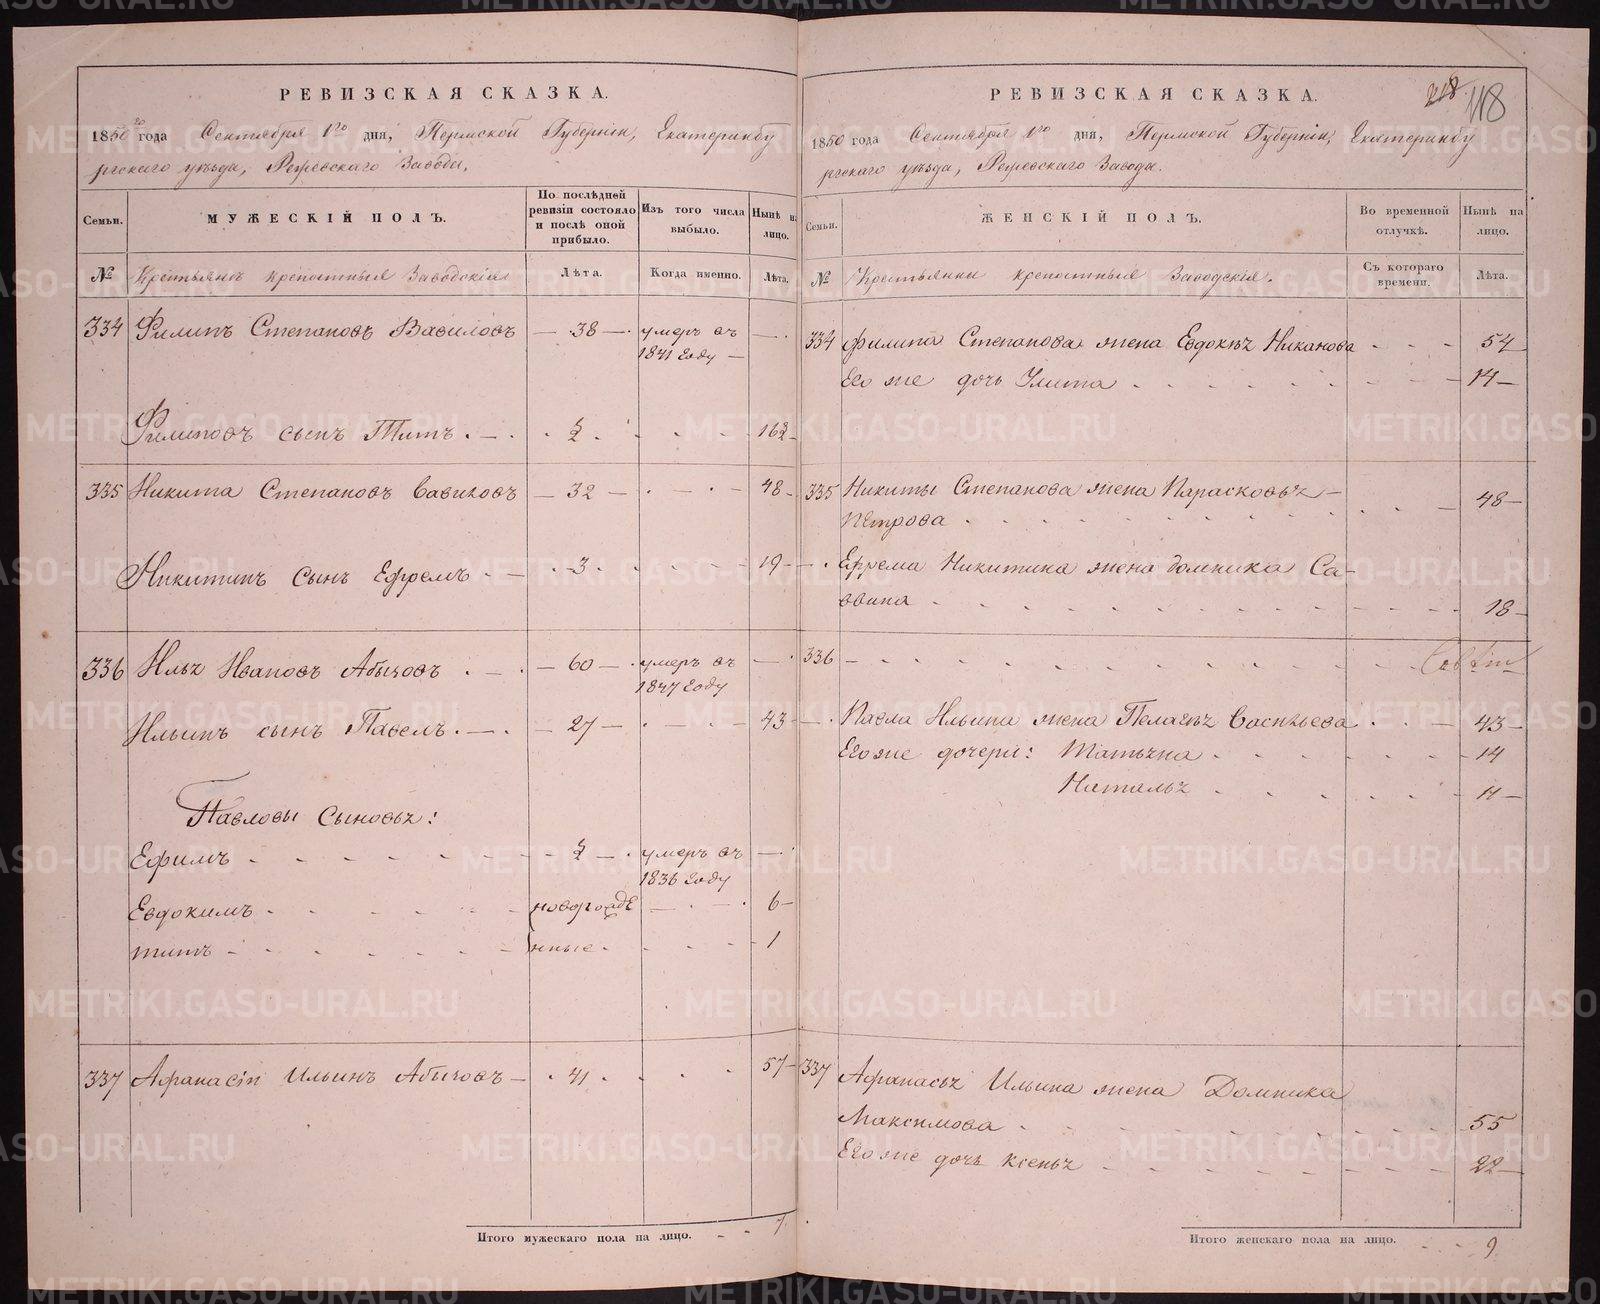 РЕВИЗСКАЯ СКАЗКА.
1850 года Сентября 1го дня, Пермской Губерніи, Екатеринбу
ргскаго уѣзда, Режевскаго Завода.
Семьи.
МУЖЕСКІЙ ПОЛЪ.
По послѣдней ревизіи состояло и послѣ оной прибыло.
Изъ того числа выбыло.
Нынѣ на лицо.
№
Крестьянъ крепостныя Заводскія
Лѣта.
Когда именно.
Лѣта.
334 Филипъ Степановъ Вавиловъ — 38 — умеръ въ —
1841 Году —
Филиповъ сынъ Титъ 1/2 16 1/2
335 Никита Степановъ Вавиловъ — 32 — 48
Никитинъ сынъ Ефремъ 3 19
336 Илья Ивановъ Абычовъ — 60 — умеръ въ —
1847 Году
Ильинъ сынъ Павелъ — 27 — 43
Павловы Сыновья:
Ефимъ 1/2 умеръ въ —
1836 Году
Евдокимъ новорожде 6
титъ нные 1
337 Афанасій Ильинъ Абычовъ 41 57
Итого мужескаго пола на лицо. 7
РЕВИЗСКАЯ СКАЗКА.
118
1850 года Сентября 1го дня, Пермской Губерніи, Екатеринбу
ргскаго уѣзда, Режевскаго Завода.
Семьи.
ЖЕНСКІЙ ПОЛЪ.
Во временной отлучкѣ.
Нынѣ на лицо.
№
Крестьянки крепостныя Заводскія.
Съ котораго времени.
Лѣта.
334 Филипа Степанова жена Евдокья Никанова 54
Его же дочь Улита 14
335 Никиты Степанова жена Парасковья
Петрова 48
Ефрема Никитина жена домника Са-
ввина 18
336
Павла Ильина жена Пелагья Васильева 43
Его же дочери: Татьяна 14
Наталья 11
337 Афанасья Ильина жена Домника
Максимова 55
Его же дочь ксенья 22
Итого женскаго пола на лицо. 9
METRIKI.GASO-URAL.RU